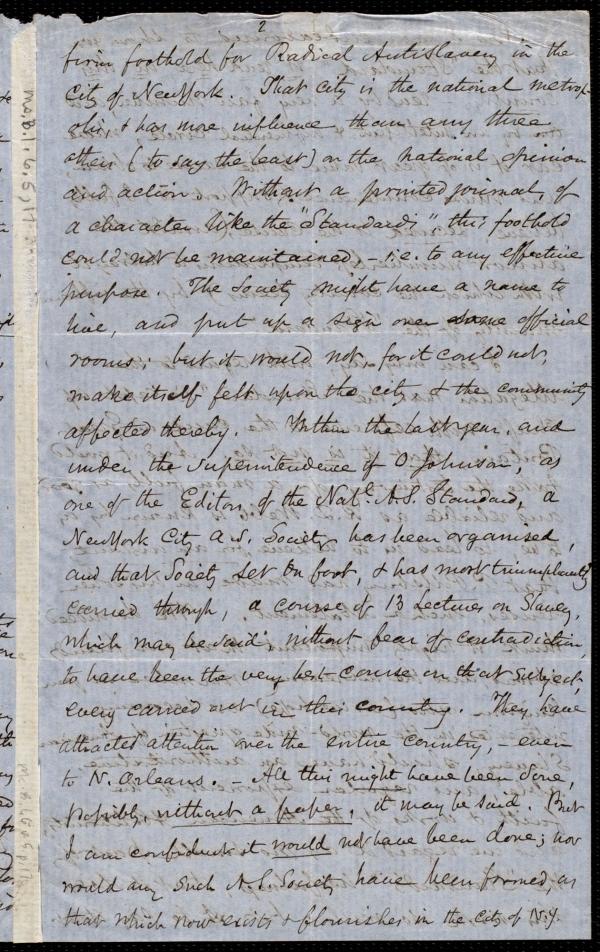 2
firm foothold for Radical Antislavery in the
city of New York. That city is the national metrop-
olis, & has more influence than any three
others (to say the least) on the national opinion
and action. Without a printed journal, of
a character like the "Standard's", this foothold
could not be maintained – i.e. to any effective
purpose. The Society might have a name to
live, and put up a sign over some official
rooms; but it would not, for it could not,
make itself felt upon the city & the community
affected thereby. Within the last year, and
under the superintendence of O. Johnson, as
one of the Editors of the Natl. A.S. Standard, a
New York City A.S. Society has been organised,
and that Society set on foot, & has most triumphantly
carried through, a course of 13 Lectures on Slavery,
which may be said, without fear of contradiction,
to have been the very best course on that subject,
every carried out in this country. They have
attracted attention over the entire country, – even
to N. Orleans. – All this might have been done,
possibly, without a paper, it may be said. But
I am confident it would not have been done; nor
would any such A.S. Society have been formed, as
that which now exists & flourishes in the city of N.Y.
Ms. B. 1. 6. 5, 17